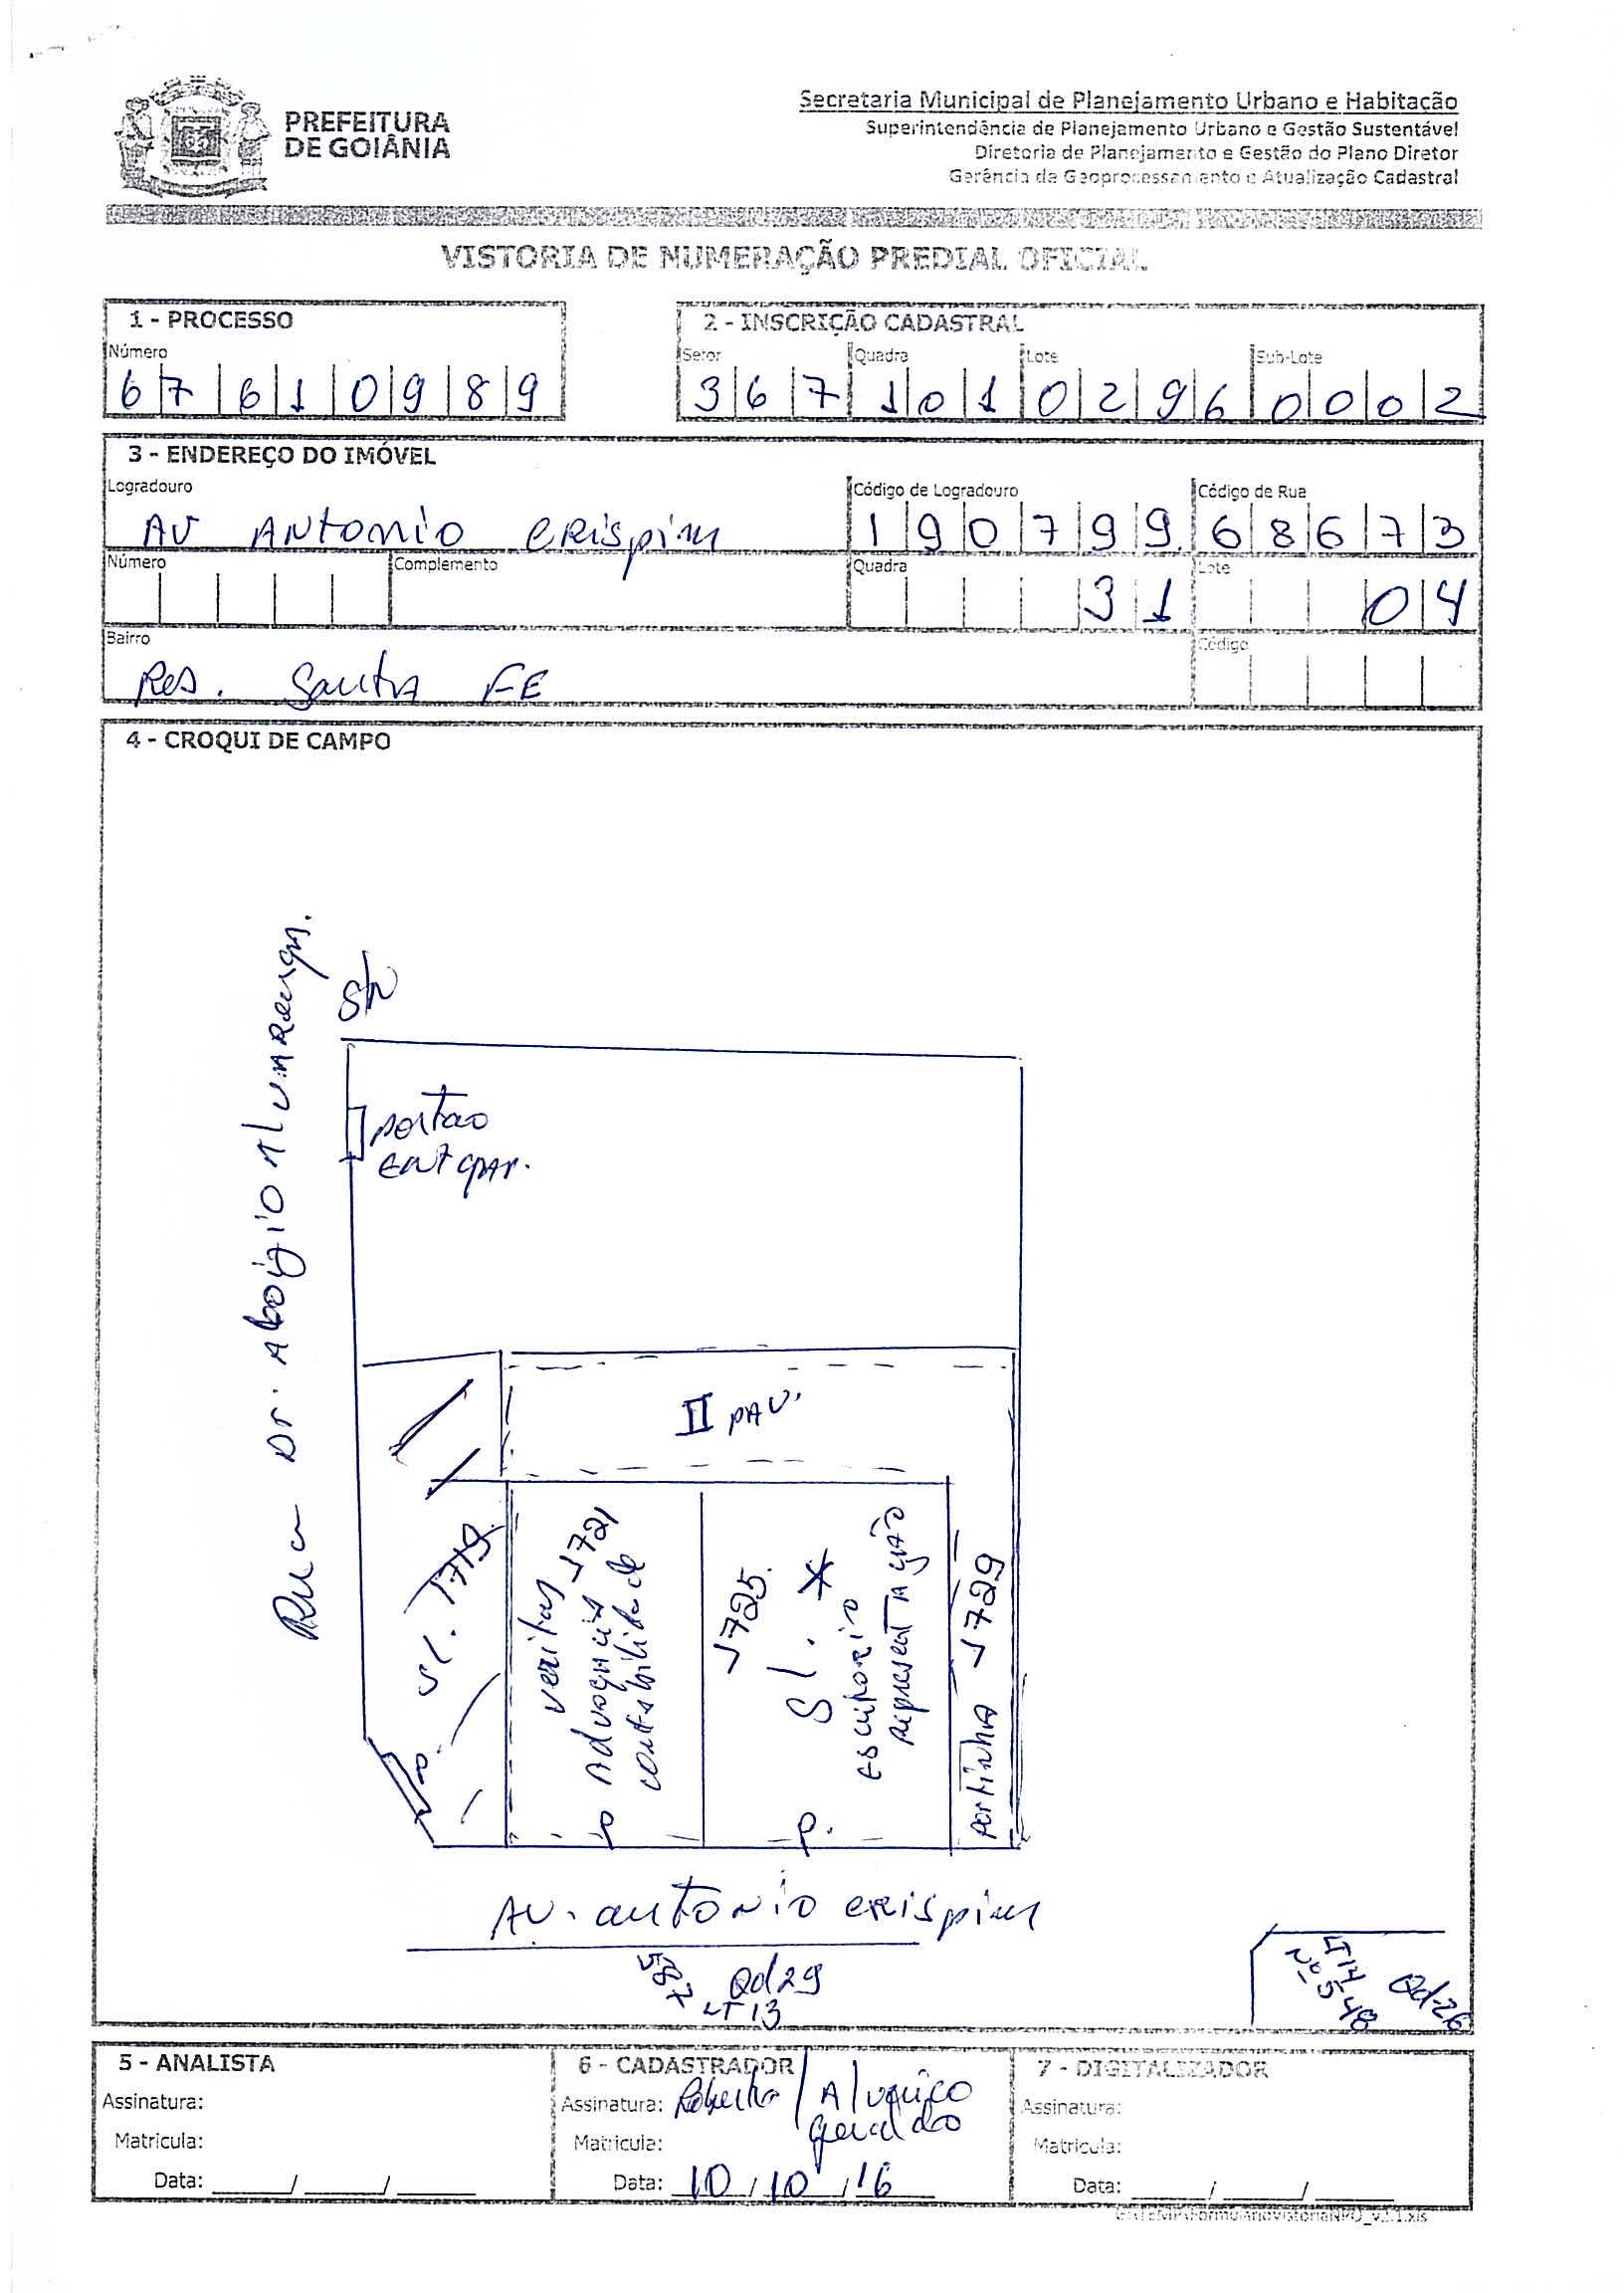 PREFEITURA
DE GOIÂNIA
Secretaria Municipal de Planejamento Urbano e Habitação
Superintendência de Planejamento Urbano e Gestão Sustentável
Diretoria de Planejamento e Gestão do Plano Diretor
Gerência de Geoprocessamento e Atualização Cadastral
VISTORIA DE NUMERAÇÃO PREDIAL OFICIAL
1 - PROCESSO
Número
6 7 6 1 0 9 8 9
2 - INSCRIÇÃO CADASTRAL
Setor Quadra Lote Sub-Lote
3 6 7 1 0 1 0 2 9 6 0 0 0 2
3 - ENDEREÇO DO IMÓVEL
Logradouro Código de Logradouro Código de Rua
AV ANTONIO CRISPIM 1 9 0 7 9 9 6 8 6 7 3
Número Complemento Quadra Lote
3 1 0 4
Bairro Código
Res. Santa FE
4 - CROQUI DE CAMPO
S/N
portao
ent gar.
Rua Dr.
II PAV.
Sl. 1719
veritas 1721
Advogacia
contabilidade
1725.
Sl. *
escritorio
representação
portinha 1729
p.
AV. antonio crispim
587 Qd 29
LT 13
LT 14 Qd-26
Nº 548
5 - ANALISTA
Assinatura:
Matricula:
Data: ____/____/____
6 - CADASTRADOR
Assinatura: Roberto / Alverico
Geraldo
Matricula:
Data: 10/10/16
7 - DIGITALIZADOR
Assinatura:
Matricula:
Data: ____/____/____